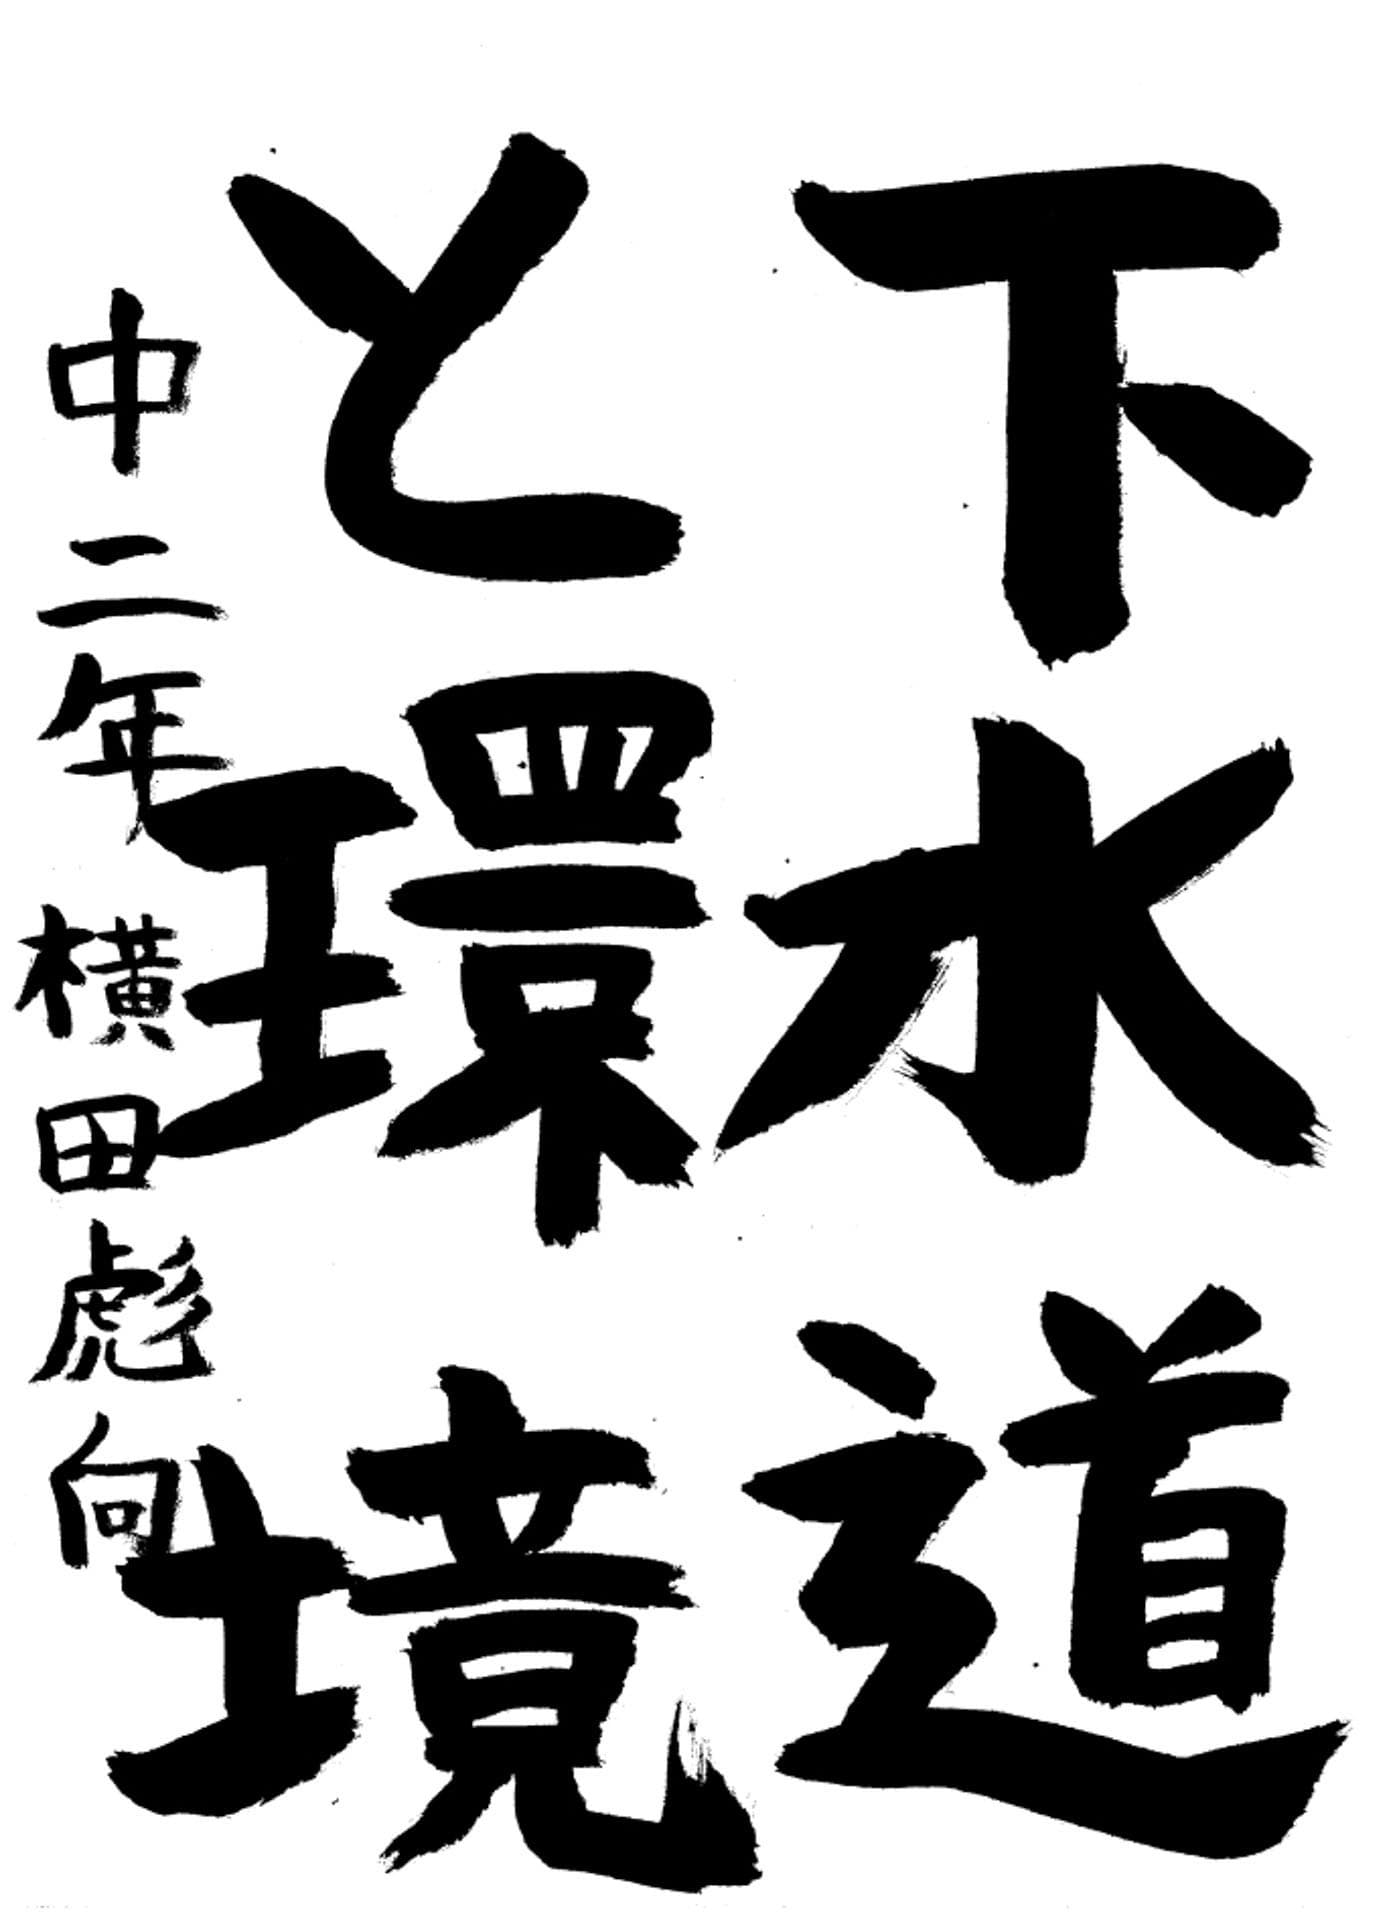 下水道
と環境
中二年 横田彪向